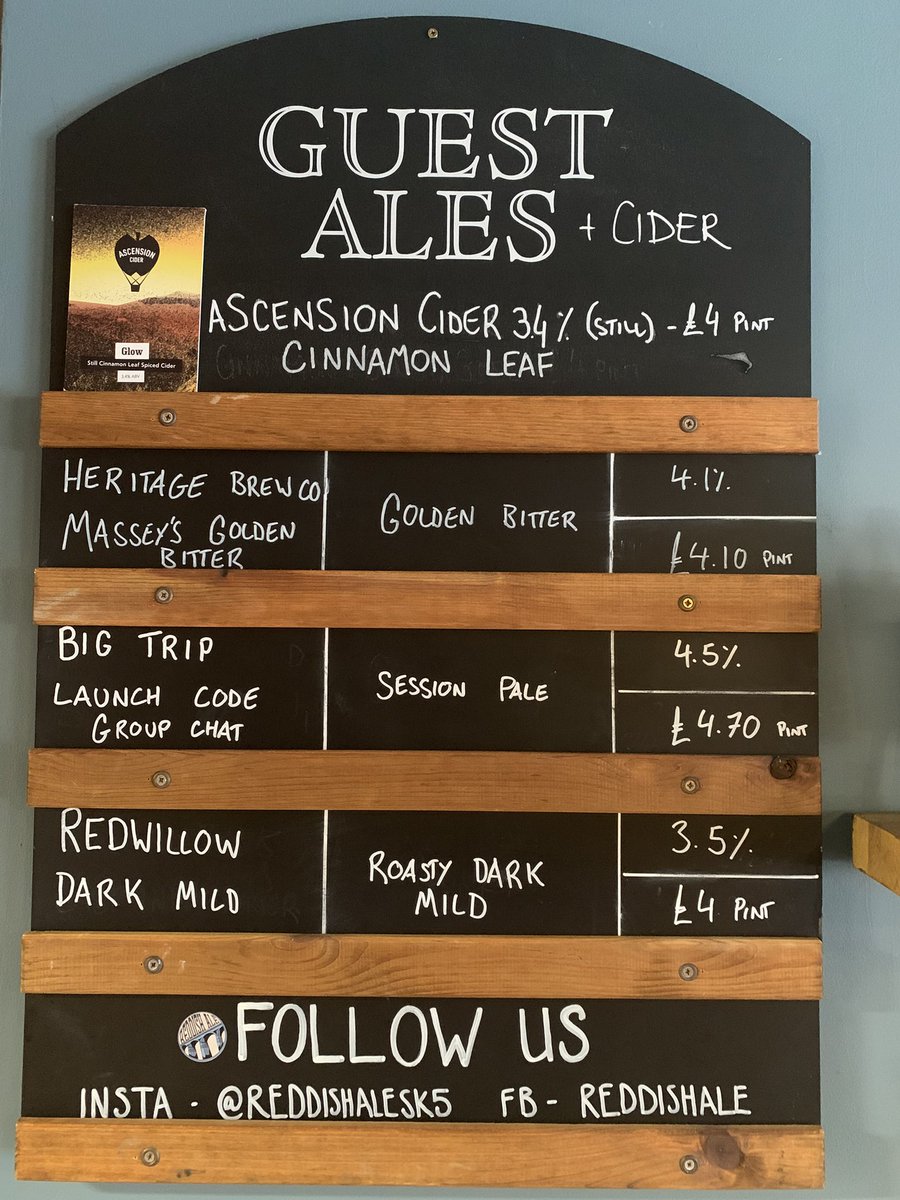 GUEST
ALES + CIDER
ASCENSION
CIDER
Glow
Still Cinnamon Leaf Spiced Cider
3.4% ABV
ASCENSION CIDER 3.4% (STILL) - £4 PINT
CINNAMON LEAF
HERITAGE BREW CO
MASSEY'S GOLDEN
BITTER
GOLDEN BITTER
4.1%
£4.10 PINT
BIG TRIP
LAUNCH CODE
GROUP CHAT
SESSION PALE
4.5%
£4.70 PINT
REDWILLOW
DARK MILD
ROASTY DARK
MILD
3.5%
£4 PINT
REDDISH ALE
FOLLOW US
INSTA - @REDDISHALESK5 FB - REDDISHALE